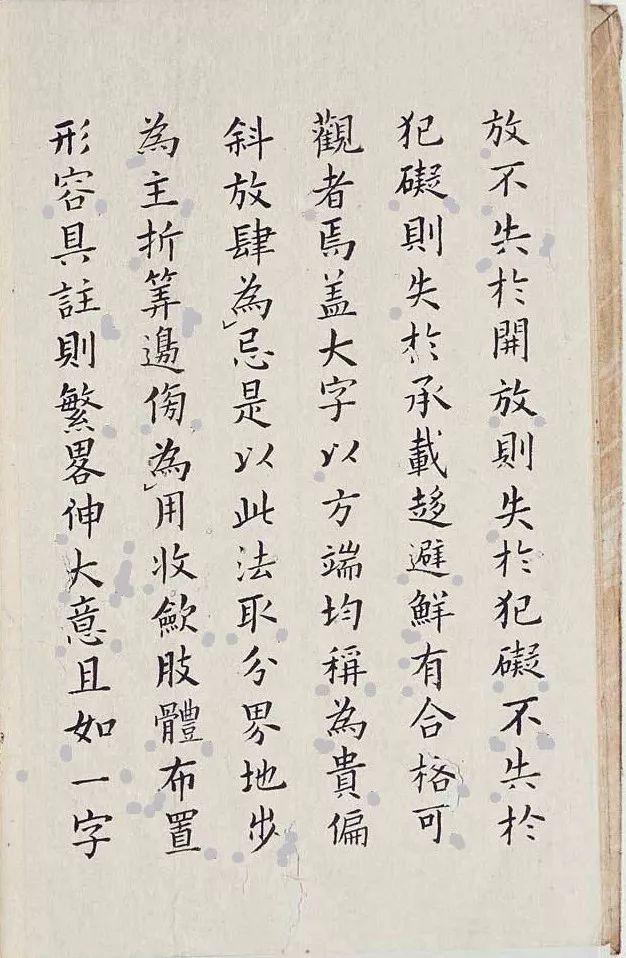 放不失於開放則失於犯礙不失於
犯礙則失於承載趍避鮮有合格可
觀者焉盖大字以方端均稱為貴偏
斜放肆為忌是以此法取分界地步
為主折筭邉傍為用收歛肢體布置
形容具註則繁畧伸大意且如一字